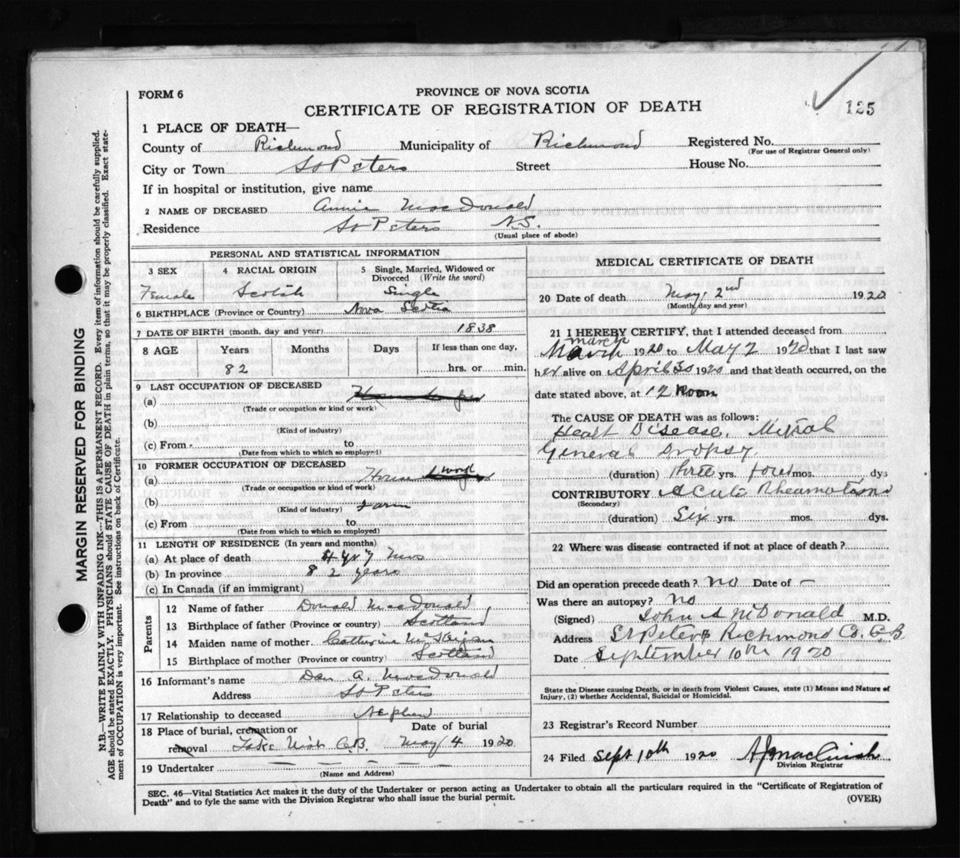 FORM 6
PROVINCE OF NOVA SCOTIA
CERTIFICATE OF REGISTRATION OF DEATH
125
1 PLACE OF DEATH—
County of Richmond Municipality of Richmond Registered No.
(For use of Registrar General only)
City or Town St Peters Street House No.
If in hospital or institution, give name
2 NAME OF DECEASED Annie MacDonald
Residence St Peters N.S.
(Usual place of abode)
PERSONAL AND STATISTICAL INFORMATION
3 SEX 4 RACIAL ORIGIN 5 Single, Married, Widowed or Divorced (Write the word)
Female Scotch Single
6 BIRTHPLACE (Province or Country) Nova Scotia
7 DATE OF BIRTH (month, day and year) 1838
8 AGE Years Months Days If less than one day,
82 hrs. or min.
9 LAST OCCUPATION OF DECEASED
(a)
(Trade or occupation or kind of work)
(b)
(Kind of industry)
(c) From to
(Date from which to which so employed)
10 FORMER OCCUPATION OF DECEASED
(a) House
(Trade or occupation or kind of work)
(b) Farm
(Kind of industry)
(c) From to
(Date from which to which so employed)
11 LENGTH OF RESIDENCE (In years and months)
(a) At place of death 4 yr 7 mos
(b) In province 82 years
(c) In Canada (if an immigrant)
Parents
12 Name of father Donald MacDonald
13 Birthplace of father (Province or country) Scotland
14 Maiden name of mother Catherine
15 Birthplace of mother (Province or country) Scotland
16 Informant's name Dan A. MacDonald
Address St Peters
17 Relationship to deceased Nephew
18 Place of burial, cremation or Date of burial
removal C.B. May 4 1920
19 Undertaker — — — — —
(Name and Address)
MEDICAL CERTIFICATE OF DEATH
20 Date of death May 2nd 1920
(Month, day and year)
21 I HEREBY CERTIFY, that I attended deceased from
march
March 1920 to May 2 1920 that I last saw
her alive on April 30 1920 and that death occurred, on the
date stated above, at 12 Noon
The CAUSE OF DEATH was as follows:
Heart Disease, Mitral
General Dropsy
(duration) three yrs. four mos. dys
CONTRIBUTORY Acute Rheumatism
(Secondary)
(duration) Six yrs. mos. dys.
22 Where was disease contracted if not at place of death?
Did an operation precede death? no Date of —
Was there an autopsy? No
(Signed) John A McDonald M.D.
Address St Peters Richmond Co. C.B
Date September 10th 1920
State the Disease causing Death, or in death from Violent Causes, state (1) Means and Nature of
Injury, (2) whether Accidental, Suicidal or Homicidal.
23 Registrar's Record Number
24 Filed Sept 10th 1920
Division Registrar
SEC. 46—Vital Statistics Act makes it the duty of the Undertaker or person acting as Undertaker to obtain all the particulars required in the "Certificate of Registration of
Death" and to fyle the same with the Division Registrar who shall issue the burial permit.
(OVER)
MARGIN RESERVED FOR BINDING
N.B.—WRITE PLAINLY WITH UNFADING INK—THIS IS A PERMANENT RECORD. Every item of information should be carefully supplied.
AGE should be stated EXACTLY. PHYSICIANS should STATE CAUSE OF DEATH in plain terms, so that it may be properly classified. Exact state-
ment of OCCUPATION is very important. See instructions on back of Certificate.